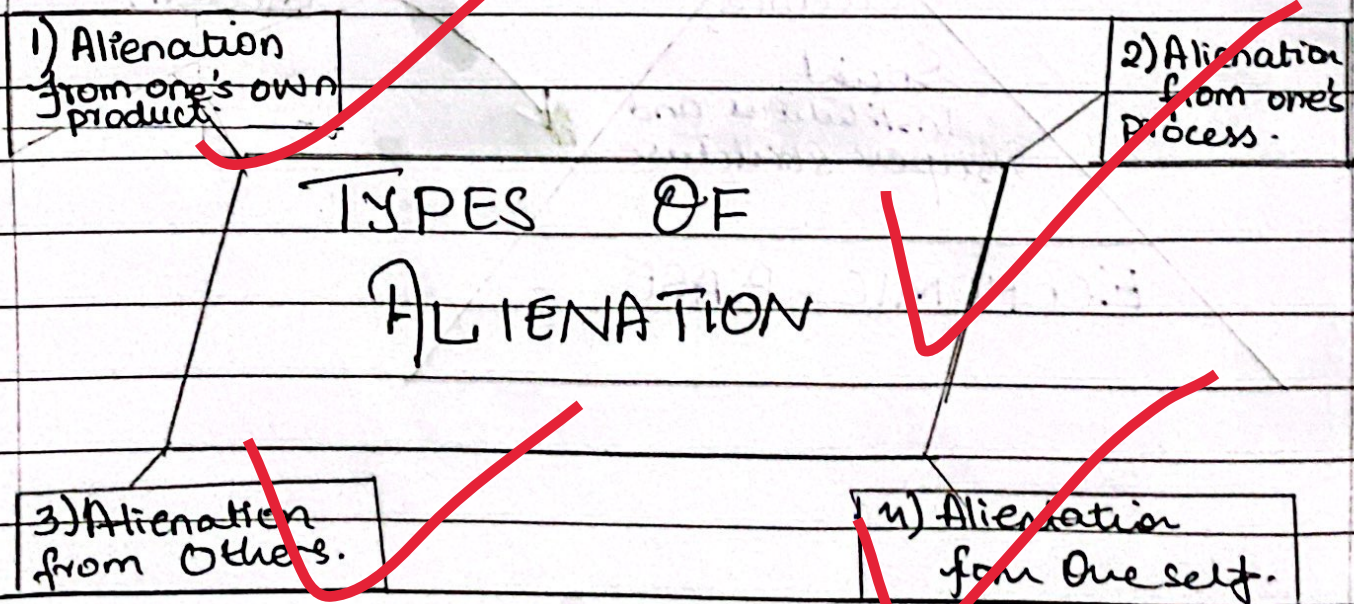 1) Alienation
from one's own
product.
2) Alienation
from one's
process.
TYPES OF
ALIENATION
3) Alienation
from Others.
4) Alienation
from One self.